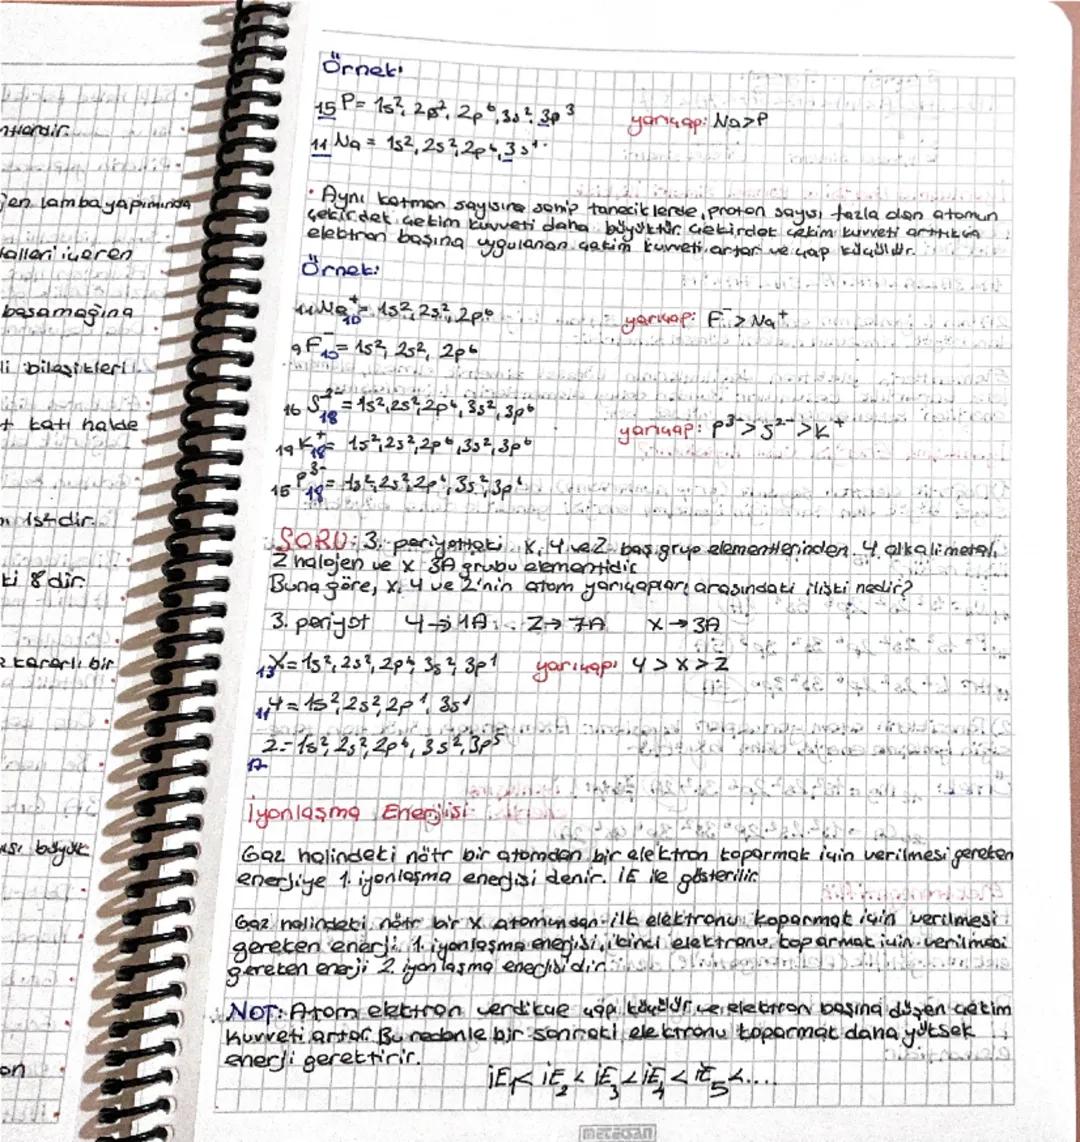 ntlardır.
jen lamba yapımında
talleri içeren
basamağına
li bileşikleri
t katı halde
1s² dir.
ki 8 dir
kararlı bir
ısı büyük
on
Örnek:
15 P = 1s², 2s², 2p⁶, 3s², 3p³ yarıçap: Na>P
11 Na = 1s², 2s², 2p⁶, 3s¹
• Aynı katman sayısına sahip taneciklerde, proton sayısı fazla olan atomun
çekirdek çekim kuvveti daha büyüktür. Çekirdek çekim kuvveti arttıkça
elektron başına uygulanan çekim kuvveti artar ve çap küçülür.
Örnek:
11 Na⁺ 10 = 1s², 2s², 2p⁶ yarıçap: F⁻ > Na⁺
9 F⁻ 10 = 1s², 2s², 2p⁶
16 S²⁻ 18 = 1s², 2s², 2p⁶, 3s², 3p⁶ yarıçap: P³⁻ > S²⁻ > K⁺
19 K⁺ 18 = 1s², 2s², 2p⁶, 3s², 3p⁶
15 P³⁻ 18 = 1s², 2s², 2p⁶, 3s², 3p⁶
SORU: 3. periyottaki X, Y ve Z baş grup elementlerinden Y alkali metal,
Z halojen ve X 3A grubu elementidir
Buna göre, X, Y ve Z'nin atom yarıçapları arasındaki ilişki nedir?
3. periyot Y → 1A Z → 7A X → 3A
13 X = 1s², 2s², 2p⁶, 3s², 3p¹ yarıçap: Y > X > Z
11 Y = 1s², 2s², 2p⁶, 3s¹
17 Z = 1s², 2s², 2p⁶, 3s², 3p⁵
İyonlaşma Enerjisi:
Gaz halindeki nötr bir atomdan bir elektron koparmak için verilmesi gereken
enerjiye 1. iyonlaşma enerjisi denir. İE ile gösterilir.
Gaz halindeki nötr bir X atomundan ilk elektronu koparmak için verilmesi
gereken enerji 1. iyonlaşma enerjisi, ikinci elektronu koparmak için verilmesi
gereken enerji 2. iyonlaşma enerjisidir.
NOT: Atom elektron verdikçe çapı küçülür ve elektron başına düşen çekim
kuvveti artar. Bu nedenle bir sonraki elektronu koparmak daha yüksek
enerji gerektirir.
İE₁ < İE₂ < İE₃ < İE₄ < İE₅ < ....
metedan